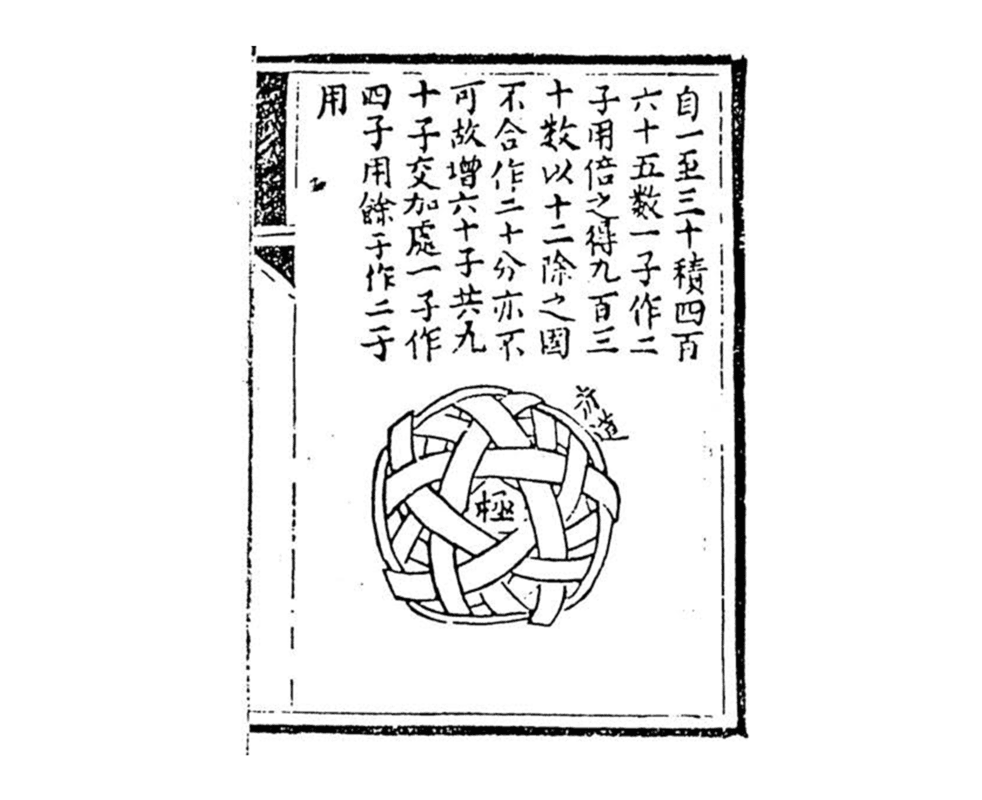 自一至三十積四百
六十五数一子作二
子用倍之得九百三
十数以十二除之圆
不合作二十分亦不
可故增六十子共九
十子交加處一子作
四子用餘子作二子
用
極